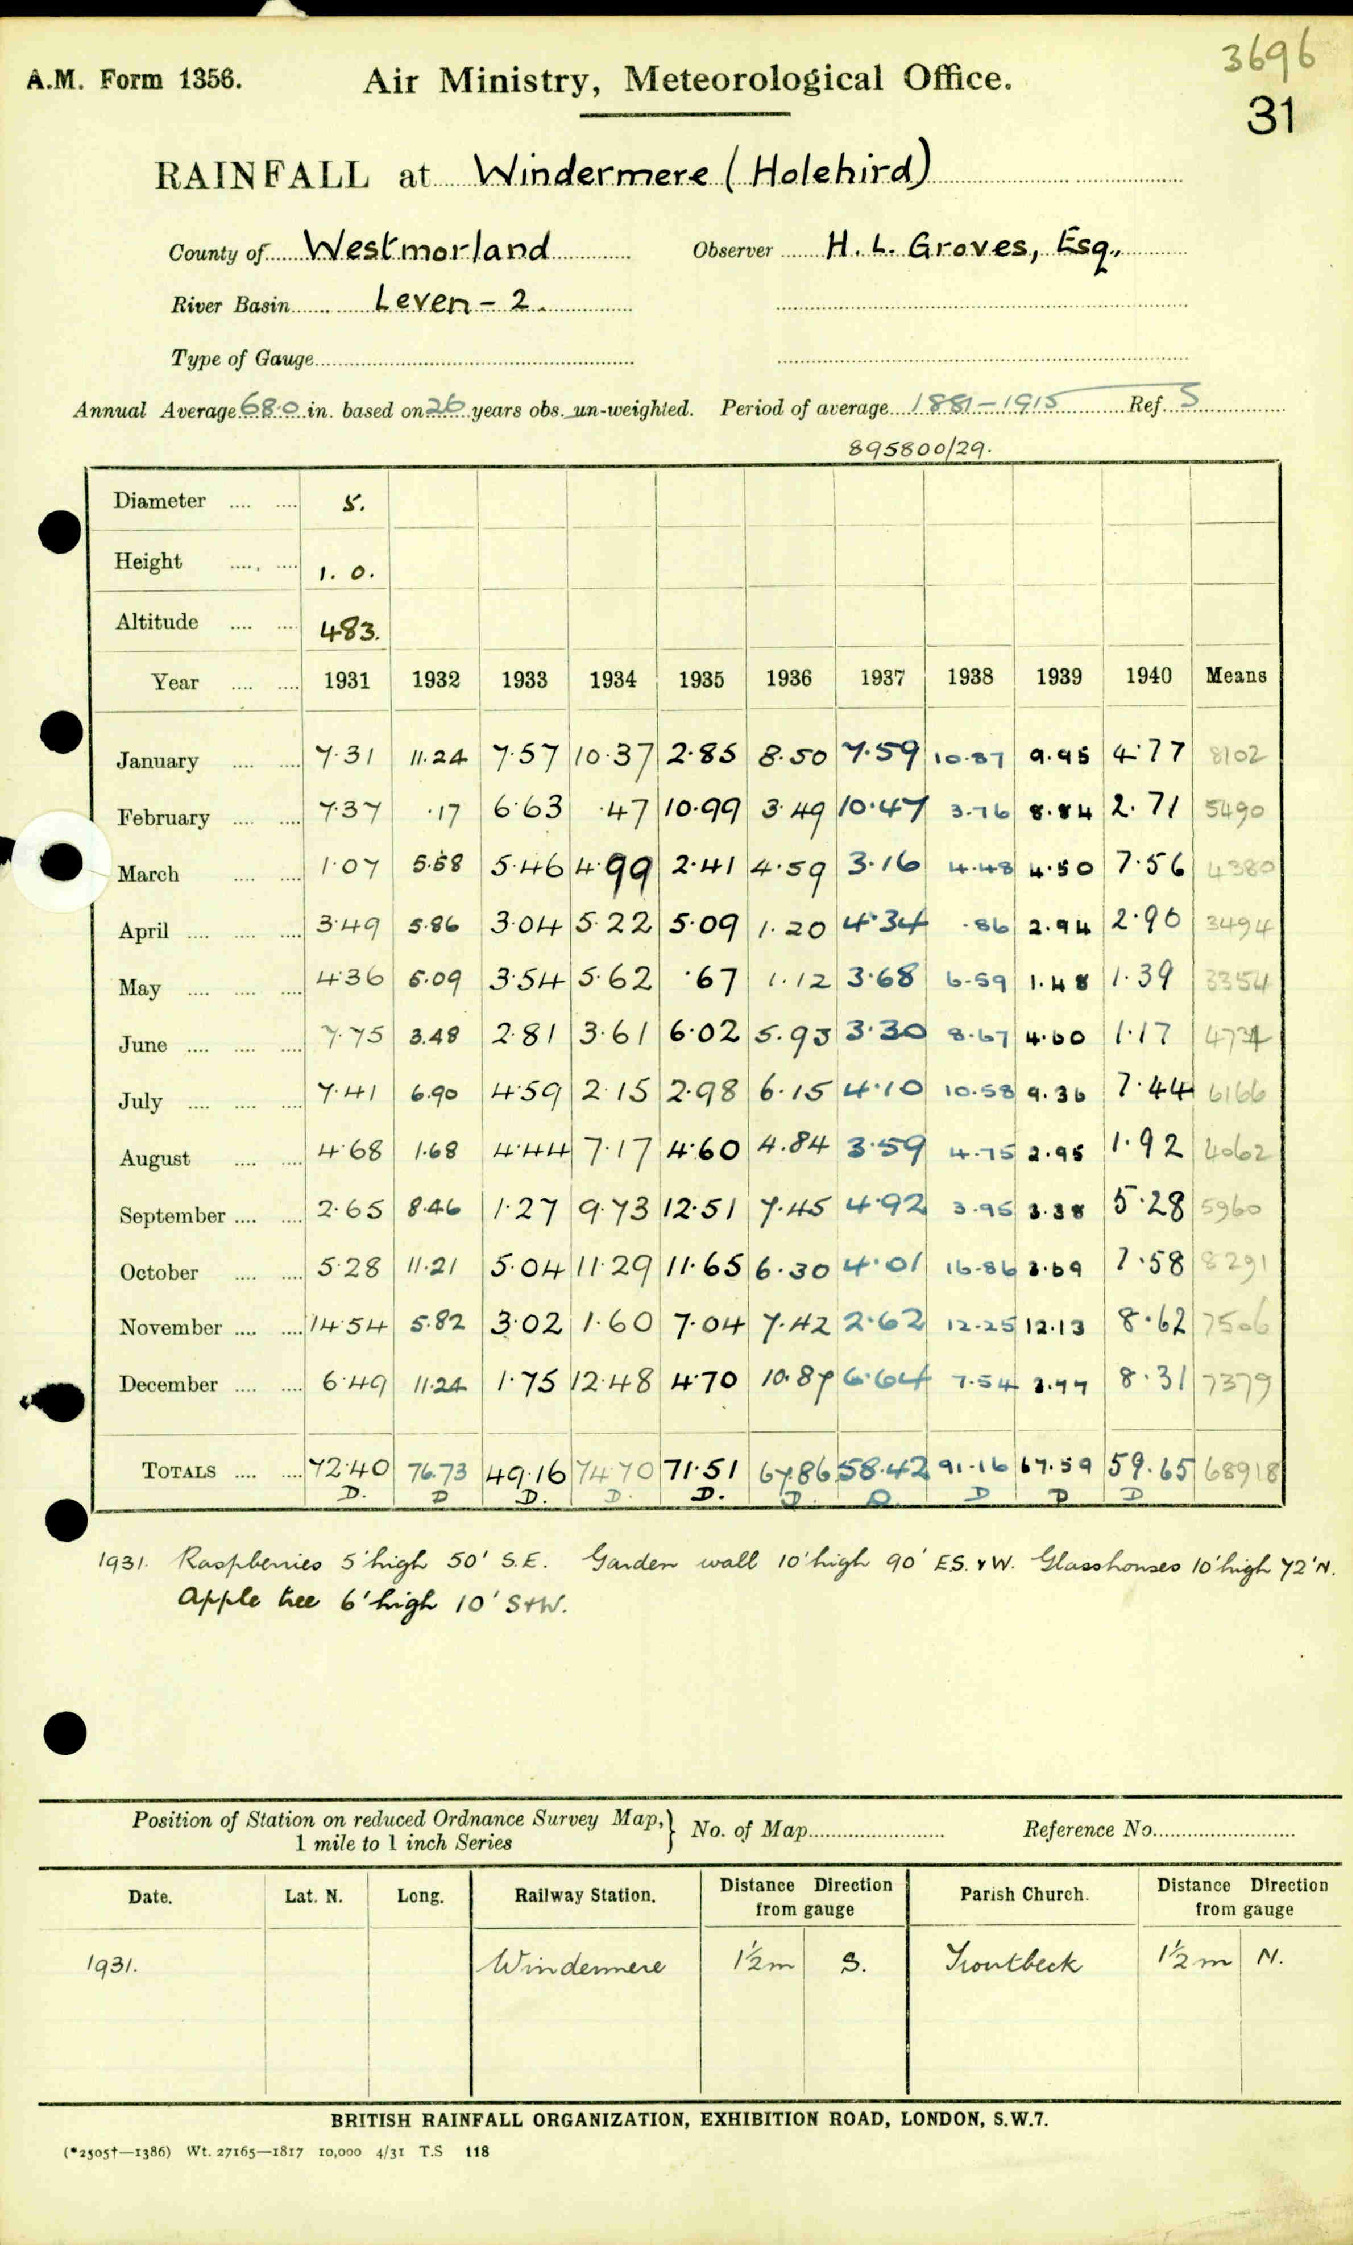 3696
A.M. Form 1356. Air Ministry, Meteorological Office.
31
RAINFALL at Windermere (Holehird)
County of Westmorland Observer H. L. Groves, Esq.,
River Basin Leven - 2.
Type of Gauge
Annual Average 68.0 in. based on 26 years obs. un-weighted. Period of average 1881-1915 Ref. S
895800/29.
Diameter 5.
Height 1. 0.
Altitude 483.
Year 1931 1932 1933 1934 1935 1936 1937 1938 1939 1940 Means
January 7.31 11.24 7.57 10.37 2.85 8.50 7.59 10.87 9.95 4.77 8102
February 7.37 .17 6.63 .47 10.99 3.49 10.47 3.76 8.84 2.71 5490
March 1.07 5.58 5.46 4.99 2.41 4.59 3.16 4.48 4.50 7.56 4380
April 3.49 5.86 3.04 5.22 5.09 1.20 4.34 .86 2.94 2.90 3494
May 4.36 5.09 3.54 5.62 .67 1.12 3.68 6.59 1.48 1.39 3354
June 7.75 3.48 2.81 3.61 6.02 5.93 3.30 8.67 4.60 1.17 4734
July 7.41 6.90 4.59 2.15 2.98 6.15 4.10 10.58 9.36 7.44 6166
August 4.68 1.68 4.44 7.17 4.60 4.84 3.59 4.75 2.95 1.92 4062
September 2.65 8.46 1.27 9.73 12.51 7.45 4.92 3.95 3.38 5.28 5960
October 5.28 11.21 5.04 11.29 11.65 6.30 4.01 16.86 3.69 7.58 8291
November 14.54 5.82 3.02 1.60 7.04 7.42 2.62 12.25 12.13 8.62 7506
December 6.49 11.24 1.75 12.48 4.70 10.87 6.64 7.54 3.77 8.31 7379
TOTALS 72.40 76.73 49.16 74.70 71.51 67.86 58.42 91.16 67.59 59.65 68918
D. D D. D. D. D. D D D D
1931. Raspberries 5' high 50' S.E. Garden wall 10' high 90' E.S. & W. Glasshouses 10' high 72' N.
Apple tree 6' high 10' S+W.
Position of Station on reduced Ordnance Survey Map, } No. of Map Reference No.
1 mile to 1 inch Series
Date. Lat. N. Long. Railway Station. Distance Direction from gauge Parish Church. Distance Direction from gauge
1931. Windermere 1½m S. Troutbeck 1½m N.
BRITISH RAINFALL ORGANIZATION, EXHIBITION ROAD, LONDON, S.W.7.
(*2505†—1386) Wt. 27165—1817 10,000 4/31 T.S 118